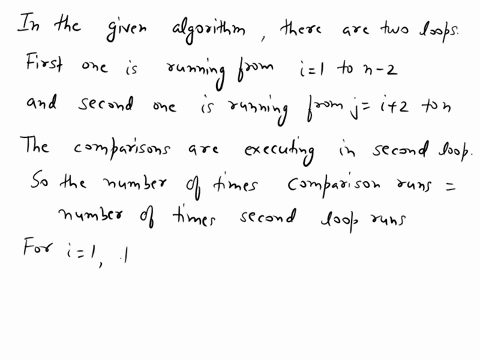 In the given algorithm, there are two loops.
First one is running from i=1 to n-2
and second one is running from j= i+2 to n
The comparisons are executing in second loop.
So the number of times comparison runs =
number of times second loop runs
For i=1,